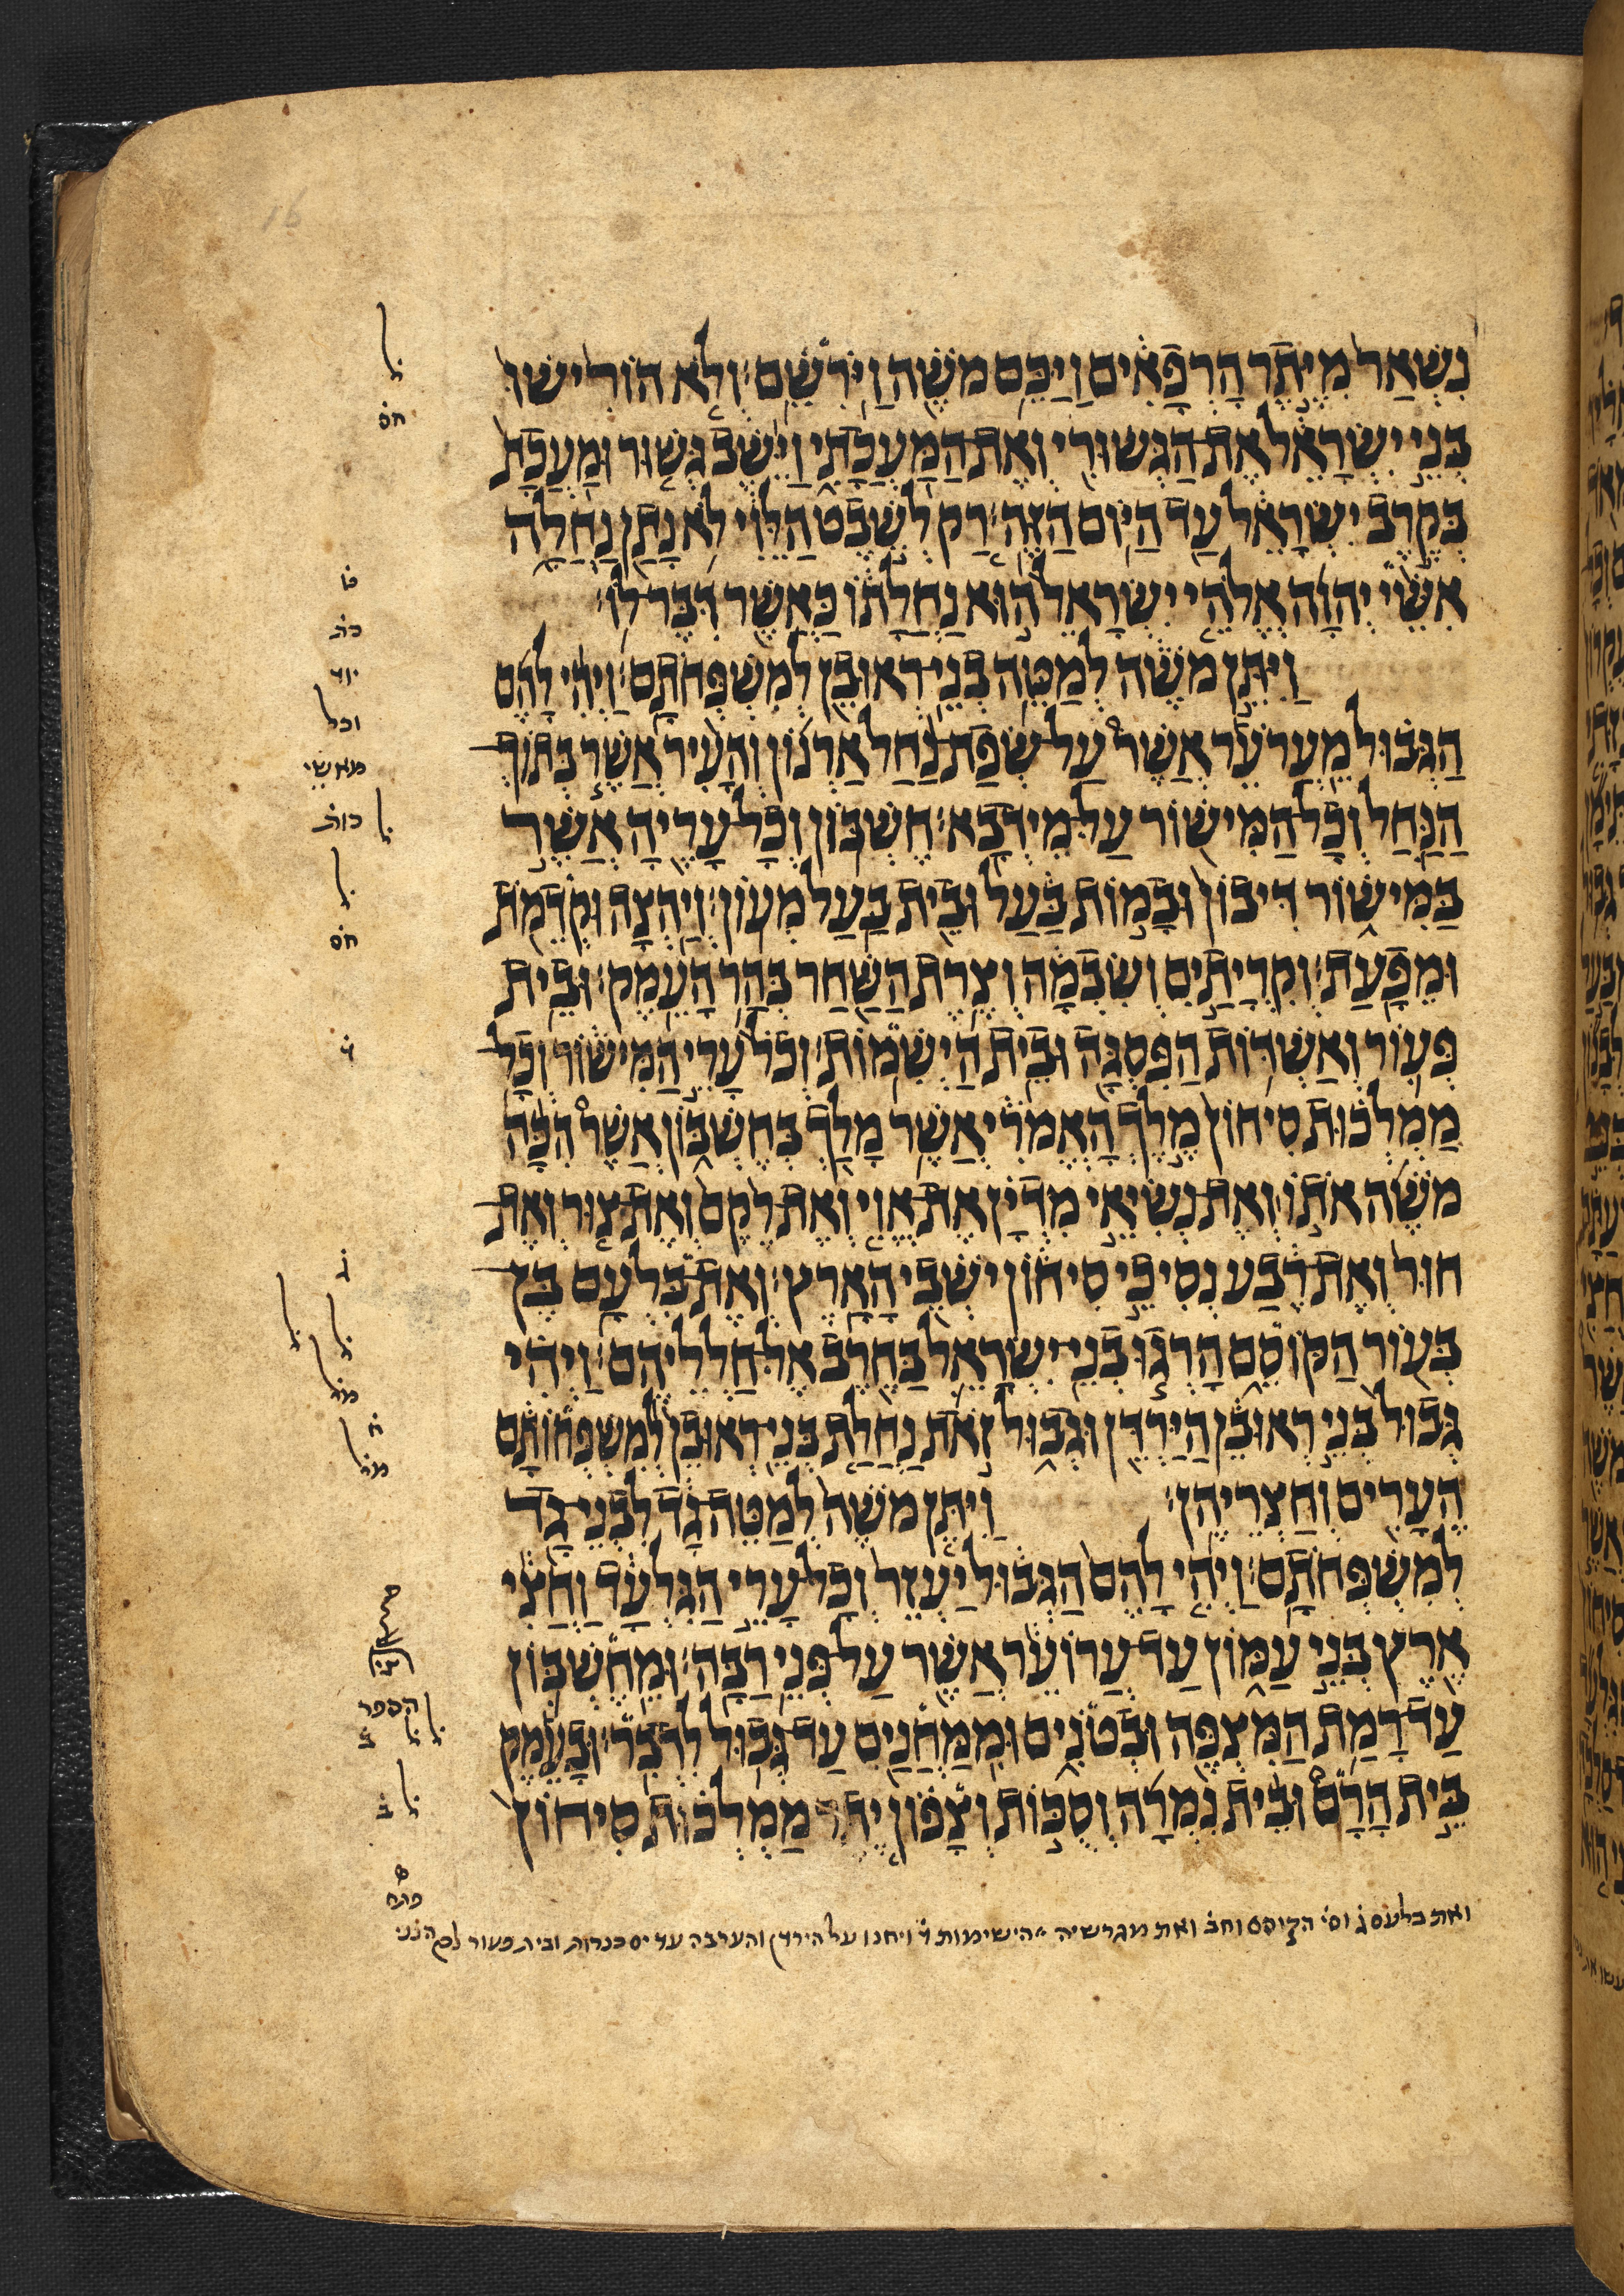 נִשְׁאַר מִיֶּתֶר הָרְפָאִים וַיַּכֵּם מֹשֶׁה וַיֹּרִשֵׁם׃ וְלֹא הוֹרִישׁוּ
בְּנֵי יִשְׂרָאֵל אֶת הַגְּשׁוּרִי וְאֶת הַמַּעֲכָתִי וַיֵּשֶׁב גְּשׁוּר וּמַעֲכָת
בְּקֶרֶב יִשְׂרָאֵל עַד הַיּוֹם הַזֶּה׃ רַק לְשֵׁבֶט הַלֵּוִי לֹא נָתַן נַחֲלָה
אִשֵּׁי יְהוָה אֱלֹהֵי יִשְׂרָאֵל הוּא נַחֲלָתוֹ כַּאֲשֶׁר דִּבֶּר לוֹ׃
וַיִּתֵּן מֹשֶׁה לְמַטֵּה בְנֵי רְאוּבֵן לְמִשְׁפְּחֹתָם׃ וַיְהִי לָהֶם
הַגְּבוּל מֵעֲרֹעֵר אֲשֶׁר עַל שְׂפַת נַחַל אַרְנוֹן וְהָעִיר אֲשֶׁר בְּתוֹךְ
הַנַּחַל וְכָל הַמִּישׁוֹר עַל מֵידְבָא׃ חֶשְׁבּוֹן וְכָל עָרֶיהָ אֲשֶׁר
בַּמִּישׁוֹר דִּיבוֹן וּבָמוֹת בַּעַל וּבֵית בַּעַל מְעוֹן׃ וְיַהְצָה וּקְדֵמֹת
וּמֵפָעַת׃ וְקִרְיָתַיִם וְשִׂבְמָה וְצֶרֶת הַשַּׁחַר בְּהַר הָעֵמֶק׃ וּבֵית
פְּעוֹר וְאַשְׁדּוֹת הַפִּסְגָּה וּבֵית הַיְשִׁמוֹת׃ וְכֹל עָרֵי הַמִּישׁוֹר וְכָל
מַמְלְכוּת סִיחוֹן מֶלֶךְ הָאֱמֹרִי אֲשֶׁר מָלַךְ בְּחֶשְׁבּוֹן אֲשֶׁר הִכָּה
מֹשֶׁה אֹתוֹ וְאֶת נְשִׂיאֵי מִדְיָן אֶת אֱוִי וְאֶת רֶקֶם וְאֶת צוּר וְאֶת
חוּר וְאֶת רֶבַע נְסִיכֵי סִיחוֹן יֹשְׁבֵי הָאָרֶץ׃ וְאֶת בִּלְעָם בֶּן
בְּעוֹר הַקּוֹסֵם הָרְגוּ בְנֵי יִשְׂרָאֵל בַּחֶרֶב אֶל חַלְלֵיהֶם׃ וַיְהִי
גְּבוּל בְּנֵי רְאוּבֵן הַיַּרְדֵּן וּגְבוּל זֹאת נַחֲלַת בְּנֵי רְאוּבֵן לְמִשְׁפְּחוֹתָם
הֶעָרִים וְחַצְרֵיהֶן׃ וַיִּתֵּן מֹשֶׁה לְמַטֵּה גָד לִבְנֵי גָד
לְמִשְׁפְּחֹתָם׃ וַיְהִי לָהֶם הַגְּבוּל יַעְזֵר וְכָל עָרֵי הַגִּלְעָד וַחֲצִי
אֶרֶץ בְּנֵי עַמּוֹן עַד עֲרוֹעֵר אֲשֶׁר עַל פְּנֵי רַבָּה׃ וּמֵחֶשְׁבּוֹן
עַד רָמַת הַמִּצְפֶּה וּבְטֹנִים וּמִמַּחֲנַיִם עַד גְּבוּל לִדְבִר׃ וּבָעֵמֶק
בֵּית הָרָם וּבֵית נִמְרָה וְסֻכּוֹת וְצָפוֹן יֶתֶר מַמְלְכוּת סִיחוֹן
ואת בלעם ג̇ וס̇י הקוסם וחב̇ ואת מגרשיה הישימות ד̇ ויחנו על הירדן והערבה עד ים כנרות ובית פעור
חס̇
יוד
וכל
חס̇
ד̇
ג̇
הספר
ב̇
פתח
16